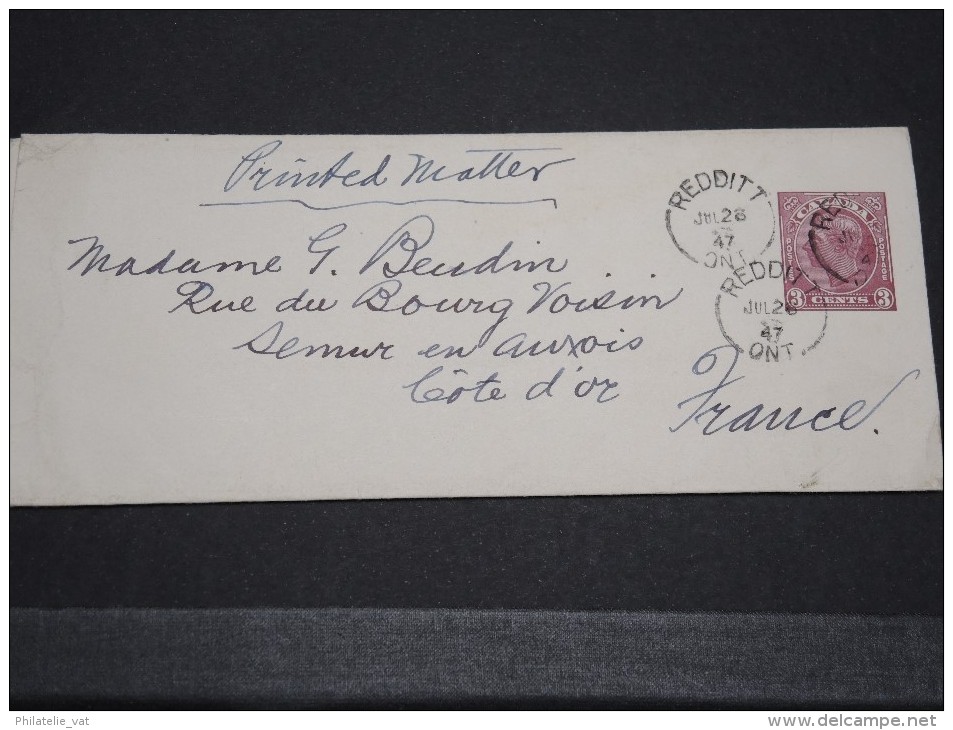 Printed Matter
REDDITT
JUL 28
47
ONT
CANADA
POSTAGE
POSTAGE
3 CENTS 3
REDDIT
JUL 28
47
ONT
Madame G. Beudin
Rue du Bourg Voisin
Semur en Auxois
Côte d'or
France.
Philatelie_vat
www.delcampe.net